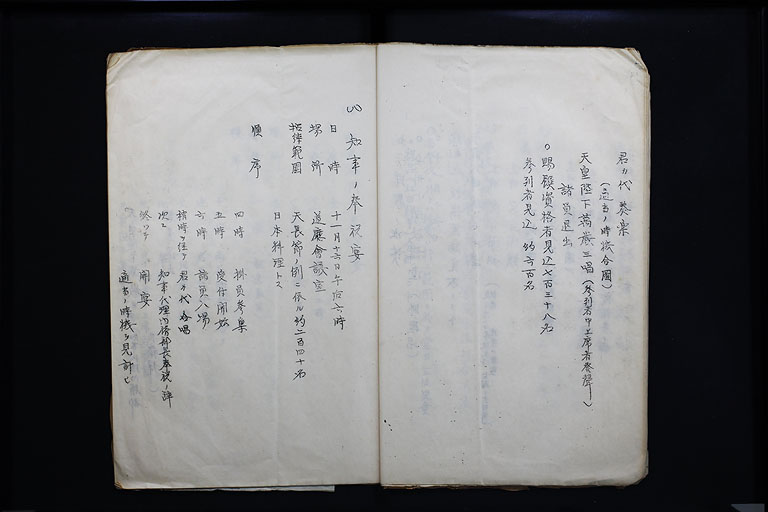 君ガ代 奏楽
(適当ノ時機合図)
天皇陛下萬歳三唱(参列者中上席者発声)
諸員退出
○賜饌資格者見込七百三十八名
参列者見込 約六百名
(八)知事ノ奉祝宴
日時 十一月十六日午后六時
場所 道庁會議室
招待範囲 天長節ノ例ニ依ル約二百四十名
日本料理トス
順序
四時 掛員参集
五時 受付開始
六時 諸員入場
君ガ代 合唱
次ニ 知事代理内務部長奉祝ノ辞
終ツテ 開宴
適当ノ時機ヲ見計ヒ